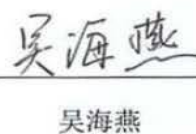 吴海燕
吴海燕